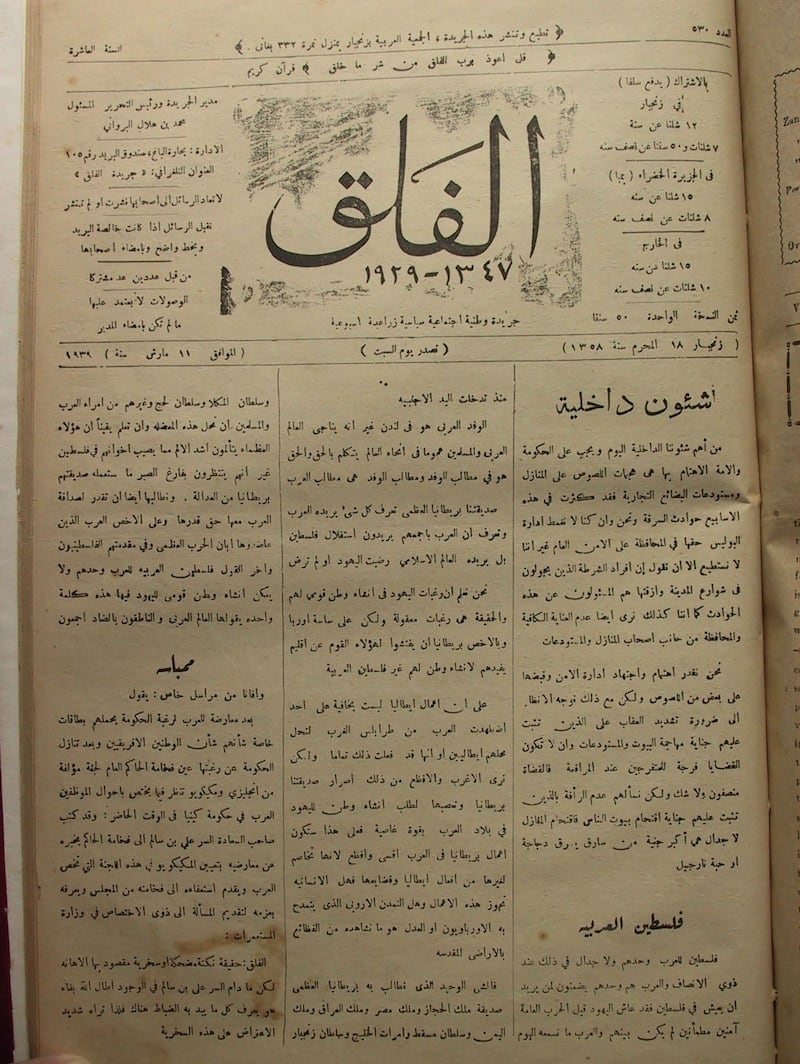 العدد ٥٣٠
﴿ تطبع وتنشر هذه الجريدة ، الجمعية العربية بزنجبار بمنزل نمرة ٣٣٢ بغانى . ﴾
السنة العاشرة
﴿ قل اعوذ برب الفلق من شر ما خلق ﴾ قرآن كريم
الاشتراك ( يدفع سلفا )
فى زنجبار
١٢ شلنا عن سنة
٧ شلنات و ٥٠ سنتا عن نصف سنه
فى الجزيرة الخضراء ( بمبا )
١٥ شلنا عن سنه
٨ شلنات عن نصف سنه
فى الخارج
١٥ شلنا عن سنه
١٠ شلنات عن نصف سنه
ثمن النسخة الواحدة ٥٠ سنتا
الفلق
١٣٤٧-١٩٢٩
جريدة وطنية اجتماعية سياسية زراعية اسبوعية
مدير الجريدة ورئيس التحرير المسئول
محمد بن هلال البروانى
الادارة : بحارة الباغ ، صندوق البريد رقم ١٠٥
العنوان التلغرافى : « جريدة الفلق »
لا تعاد الرسائل الى اصحابها نشرت او لم تنشر
نقبل الرسائل اذا كانت خالصة البريد
وبخط واضح وبامضاء اصحابها
من قبل عددين عد مشتركا
الوصولات لا يعتمد عليها
ما لم تكن بامضاء المدير
( زنجبار ١٨ المحرم سنة ١٣٥٨ )
( تصدر يوم السبت )
( الموافق ١١ مارش سنة ١٩٣٩ )
شئون داخلية
من أهم شئوننا الداخلية اليوم ويجب على الحكومة
والامة الاهتمام بها هى هجمات اللصوص على المنازل
ومستودعات البضائع التجارية فقد كثرت في هذه
الاسابيع حوادث السرقة ونحن وان كنا لا نغمط ادارة
البوليس حقها فى المحافظة على الامن العام غير اننا
لا نستطيع الا أن نقول إن افراد الشرطة الذين يجولون
فى شوارع المدينة وازقتها هم المسئولون عن هذه
الحوادث كما اننا كذلك نرى ايضا عدم العناية الكافية
والمحافظة من جانب اصحاب المنازل والمستودعات
نحن نقدر اهتمام واجتهاد ادارة الامن وقبضها
على بعض من اللصوص ولكن مع ذلك نوجه الانظار
الى ضرورة تشديد العقاب على الذين تثبت
عليهم جناية مهاجمة البيوت والمستودعات وان لا تكون
القضايا فرجة للمتفرجين عند المرافعة فالقضاة
منصفون ولا شك ولكن نسألهم عدم الرأفة بالذين
تثبت عليهم جناية اقتحام بيوت الناس فاقتحام المنازل
لا جدال هي أكبر جنية من سارق يسرق دجاجة
او حبة نارجيل
فلسطين العربيه
فلسطين للعرب وحدهم ولا جدال في ذلك عند
ذوي الانصاف والعرب هم وحدهم يضمنون لمن يريد
ان يعيش في فلسطين فقد عاش اليهود قبل الحرب العامة
آمنين مطمأنين لم يكن بينهم والعرب ما نسمعه اليوم
منذ تدخلت اليد الاجنبيه
الوفد العربى هو فى لندن غير انه يناجى العالم
العربى والمسلمين عموما فى انحاء العالم يتكلم بالحق والحق
هو في مطالب الوفد ومطالب الوفد هى مطالب العرب
صديقتنا بريطانيا العظمى تعرف كل شىء يريده العرب
وتعرف أن العرب باجمعهم يريدون استقلال فلسطين
بل يريده العالم الاسلامي رضيت اليهود او لم ترض
نحن نعلم أن رغبات اليهود فى انشاء وطن قومي لهم
والحقيقة هى رغبات معقولة ولكن على ساسة أوربا
وبالاخص بريطانيا أن يفتشوا لهؤلاء القوم عن اقليم
يفيدهم لانشاء وطن لهم غير فلسطين العربية
على أن اعمال ايطاليا ليست بخافية على احد
اضطهدت العرب من طرابلس الغرب لتحل
محلهم ايطاليين أو أنها قد فعلت ذلك تماما ولكن
نرى الاغرب والافظع من ذلك اصرار صديقتنا
بريطانيا وتعصبها لطلب انشاء وطن لليهود
في بلاد العرب بقوة غاصبة فعلى هذا ستكون
اعمال بريطانيا فى العرب اقسى وأفظع لانها تخاصم
لغيرها من افعال ايطاليا وفضايعها فهل الانسانيه
تجوز هذه الاعمال وهل التمدن الاروبى الذى يتمدح
به الاورباويون او العدل هو ما نشاهده من الفظائع
بالاراضى المقدسه
فالشى الوحيد الذى نطالب به بريطانيا العظمى
صديقة ملك الحجاز وملك مصر وملك العراق وملك
اليمن وسلطان مسقط وامرات الخليج وسلطان زنجبار
وسلطان المكلا وسلطان لحج وغيرهم من امراء العرب
والمسلمين أن تحل هذه المعضله وان تعلم يقيناً أن هؤلاء
العظماء يتألمون أشد الالم مما يصيب اخوانهم فى فلسطين
غير أنهم ينتظرون بفارغ الصبر ما ستعمله صديقتهم
بريطانيا من العدالة . ونطالبها أيضا ان تقدر لصداقة
العرب معها حق قدرها وعلى الاخص العرب الذين
عاضدوها ابان الحرب العظمى وفي مقدمتهم الفلسطينيون
وآخر القول فلسطين العربيه للعرب وحدهم ولا
يمكن انشاء وطن قومى لليهود فيها هذه كلمة
واحده يقولها العالم العربى والناطقون بالضاد اجمعون
ممباسه
وافانا من مراسل خاص : يقول
بعد معارضة للعرب لرغبة الحكومة بحملهم بطاقات
خاصة شأنهم شأن الوطنين الافريقيين وبعد تنازل
الحكومة عن رغبتها عين فخامة الحاكم العام لجنة مؤلفة
من انجليزي ومكيكويو تنظر فيما يختص باحوال الموظفين
العرب في حكومة كينيا فى الوقت الحاضر : وقد كتب
صاحب السعادة السر على بن سالم الى فخامة الحاكم يخبره
عن معارضيه بتعيين المكيكويو فى هذه اللجنة التى تخص
العرب ويقدم استعفاءه الى فخامته من المجلس ويعرفه
بعزمه لتقديم المسألة الى ذوى الاختصاص فى وزارة
المستعمرات :
الفلق : حقيقة نكتة مضحكة وسخرية مقصود بها الاهانه
لكن ما دام السر على بن سالم في الوجود اطال الله بقاه
هو يعرف كل ما يبد به الضباط هناك فلذا نراه شديد
الاعتراض على هذه السخرية